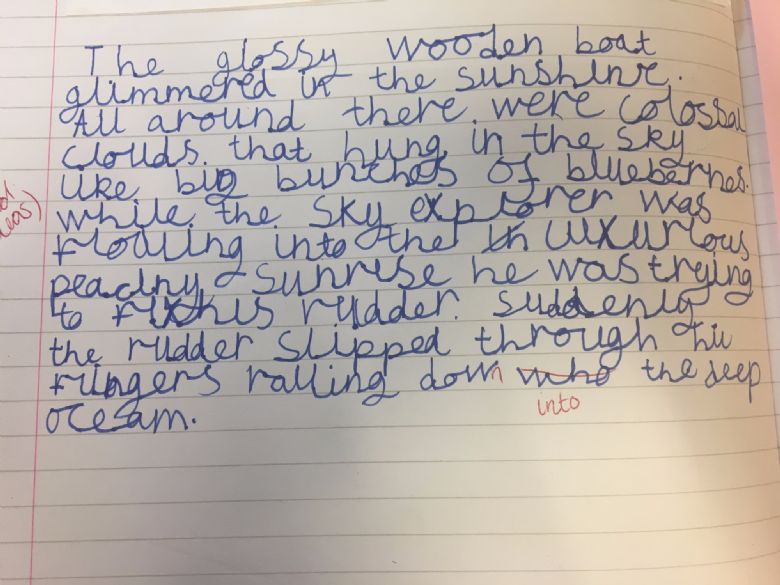 The glossy wooden boat
glimmered in the sunshine.
All around there were colossal
clouds. that hung in the sky
like big bunches of blueberries.
while the sky explorer was
floating into the luxurious
peachy sunrise he was trying
to fix his rudder. suddenly
the rudder slipped through his
fingers falling down who the deep
ocean.
into
eas)